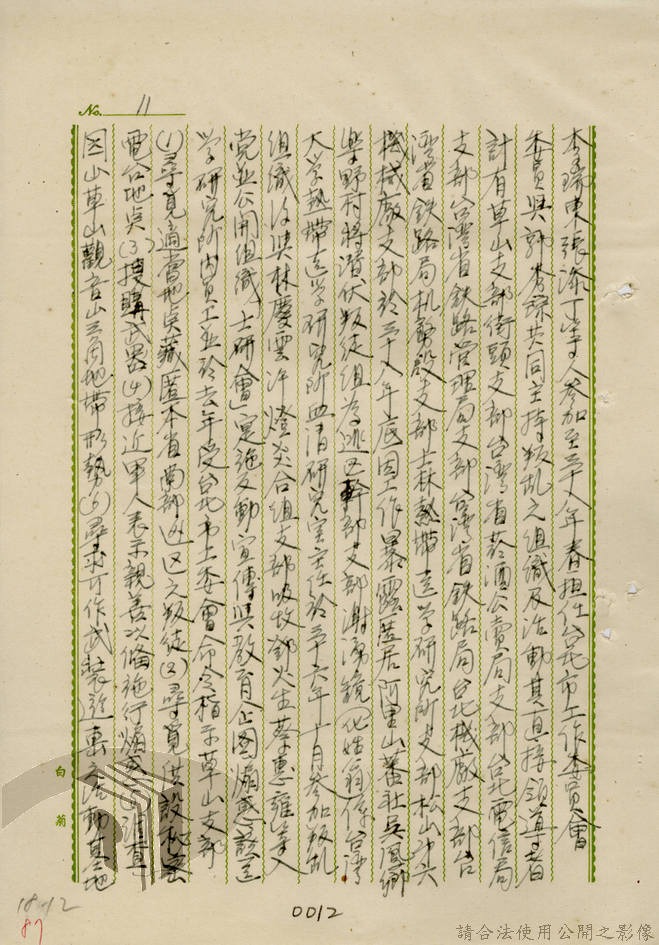 No. 11
李瑞東張添丁等人參加至三十八年春担任台北市工作委員會
委員與郭琇琮共同主持叛乱之組識及活動其直接領導者
計有草山支部街頭支部台湾省菸酒公賣局支部台北電信局
支部台湾省鉄路管理局支部台湾省鉄路局台北機廠支部台
湾省鉄路局机務段支部士林熱帶医学研究所支部松山
机械廠支部於三十八年底因工作暴露匿居阿里山蕃社吳鳳鄉
樂野村將潛伏叛徒組為逃区幹部支部謝湧鏡(化姓翁)係台湾
大学熱帶医学研究所血清研究室主任於三十六年十月參加叛乱
組識後與林慶雲許燈炎合組支部吸收鄧火生蔡惠雍等入
党並公開組織「士研會」實施反動宣傳與教育企图煽惑該医
学研究所內員工並於去年受台北市工委會命令指示草山支部
(1)尋覓適當地点藏匿本省南部逃区之叛徒(2)尋覓供設秘密
電台地点(3)搜購武器(4)接近軍人表示親善以備施行煽惑(5)
因山草山觀音山三角地帶形勢(6)尋求可作武裝活動基地
白菊
18-12
87
0012
請合法使用公開之影像